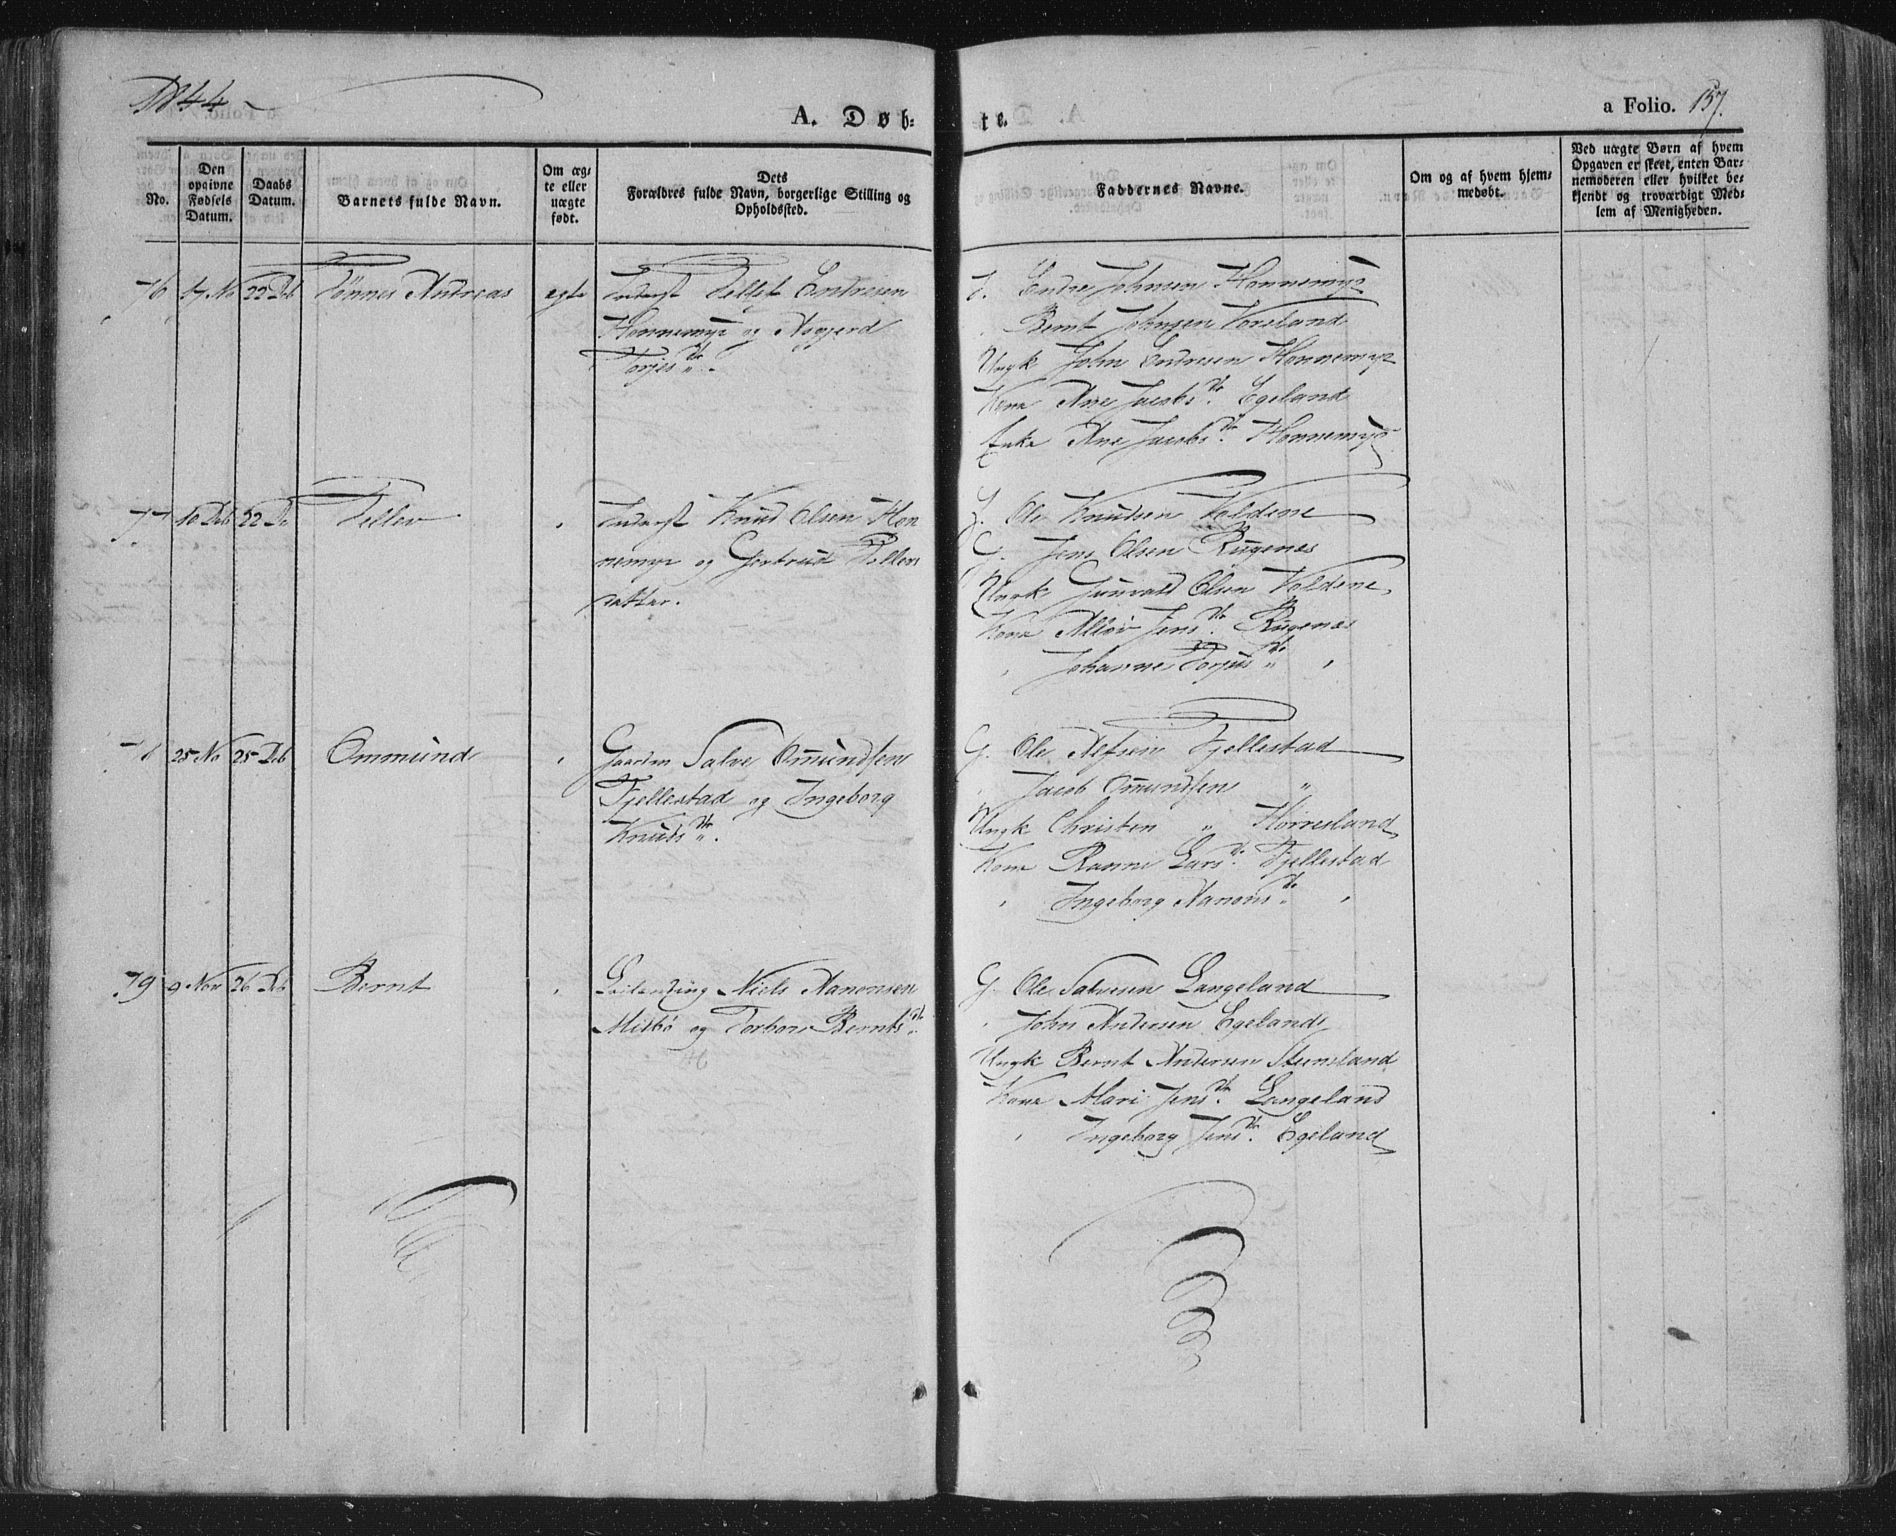 1844
A. Døb-
te.
a Folio. 157.
No.
Den opgivne Fødsels Datum.
Daabs Datum.
Barnets fulde Navn.
Om æg-te eller uægte født.
Dets Forældres fulde Navn, borgerlige Stilling og Opholdssted.
Faddernes Navne.
Om og af hvem hjem-medøbt.
Ved uægte Børn af hvem Opgaven er skeet, enten Bar-nemoderen eller hvilket be-kjendt og troværdigt Med-lem af Menigheden.
76 17 No 22 Deb Tönnes Andreas egte Inderst Tellef Endresen
Honnemyr og Aagjerd
Torjesdr.
J. Endre Johnsen Honnemyr
Bernt Johnsen Voreland
Ungk John Endresen Honnemyr
Kone Ane Jacobsdr. Egeland
Enke Ane Jacobsdr. Honnemyr
77 10 Deb 22 De Tellev " Inderst Knud Olsen Hon
nemyr og Gertrud Tellevs
datter.
J. Ole Knudsen Voldene
G. Jens Olsen Rugenes
Ungk Gunvald Olsen Voldene
Kone Allov Jensdr. Rugenes
" Johanne Torjusdr. "
78 25 No 25 Deb Ommund " Gaardm Salve Omundsen
Fjellestad og Ingeborg
Knudsdr.
G. Ole Alfsen Fjellestad
Jacob Omundsen "
Ungk Christen " Horresland
Kone Ranne Larsdr. Fjellestad
" Ingeborg Aanonsdr. "
79 9 Nov 26 Deb Bernt " Leilending Niels Aanonsen
Misbö og Torbor Berntsdr.
G. Ole Salvesen Langeland
" John Andersen Egeland
Ungk Bernt Andersen Steensland
Kone Mari Jensdr. Langeland
" Ingeborg Jensdr. Egeland